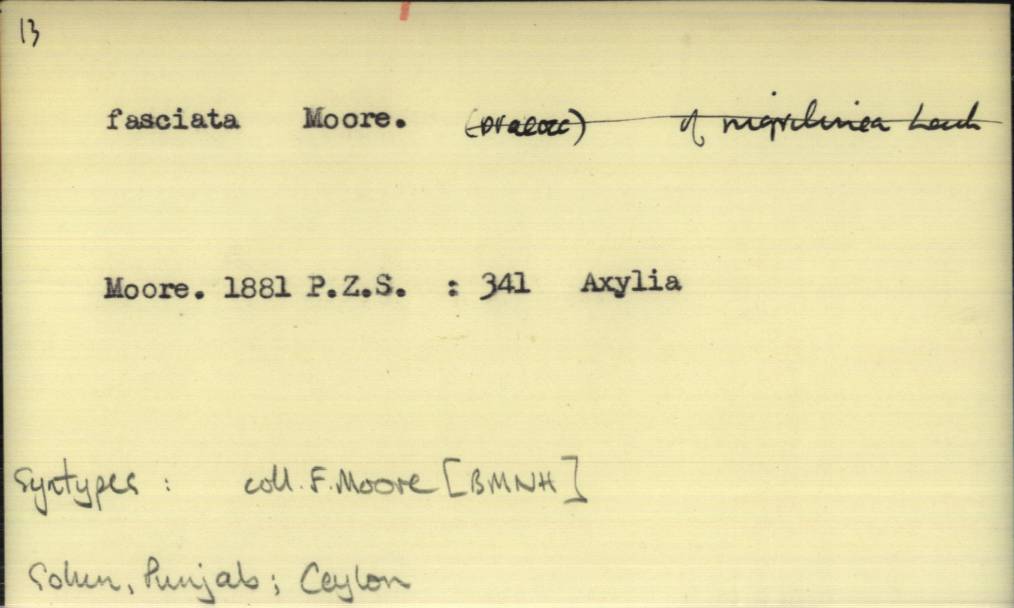 13
fasciata Moore. of nigrilinea Leech
Moore. 1881 P.Z.S. : 341 Axylia
Syntypes : coll. F. Moore [BMNH]
Solun, Punjab; Ceylon